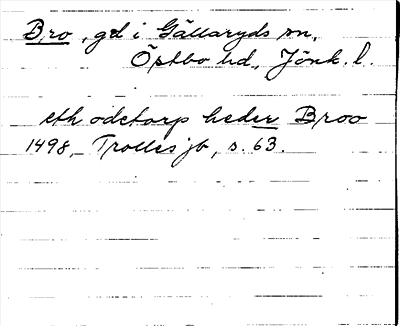 Bro, gd i Gällaryds sn,
Östbo hd, Jönk. l.
eth ødetorp heder Broo
1498, Trolles jb, s. 63.